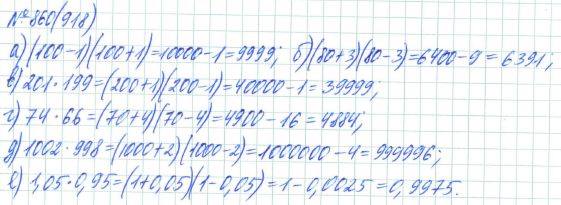 № 860(918)
а) (100-1)(100+1)=10000-1=9999; б) (80+3)(80-3)=6400-9=6391;
в) 201·199=(200+1)(200-1)=40000-1=39999;
г) 74·66=(70+4)(70-4)=4900-16=4884;
д) 1002·998=(1000+2)(1000-2)=1000000-4=999996;
е) 1,05·0,95=(1+0,05)(1-0,05)=1-0,0025=0,9975.